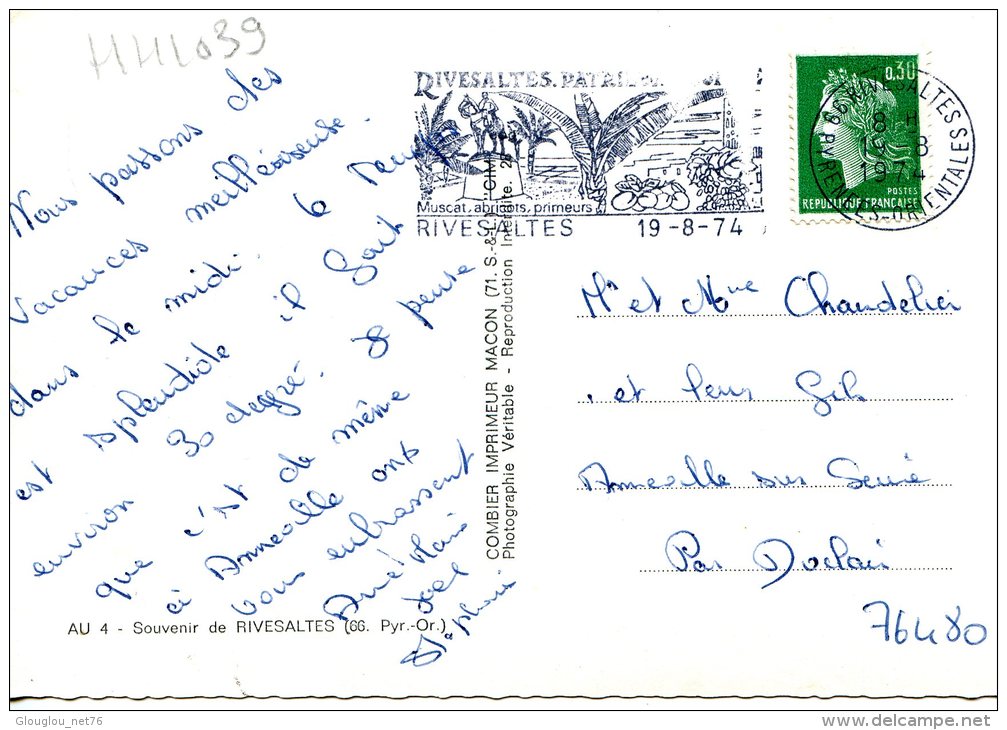 HHH 039
Nous passons des
vacances meilleureuse.
dans le midi. le temps
est splendide il fait
environ 30 degré. Je pense
que c'est de même
à Anneville on
vous embrassent
André Marie
Joel
Stéphanie
AU 4 - Souvenir de RIVESALTES (66. Pyr.-Or.)
COMBIER IMPRIMEUR MACON (71. S.-&-L.) "CIM"
Photographie Véritable - Reproduction Interdite.
RIVESALTES. PATRIE
Muscat, abricots, primeurs
RIVESALTES 19-8-74
0,30
POSTES
REPUBLIQUE FRANÇAISE
66 RIVESALTES
18 H
19-8
1974
PYRENEES-ORIENTALES
Mr et Mme Chandelier
et leur fils
Anneville sur Seine
Par Duclair
76480
Glouglou_net76
delcampe.net